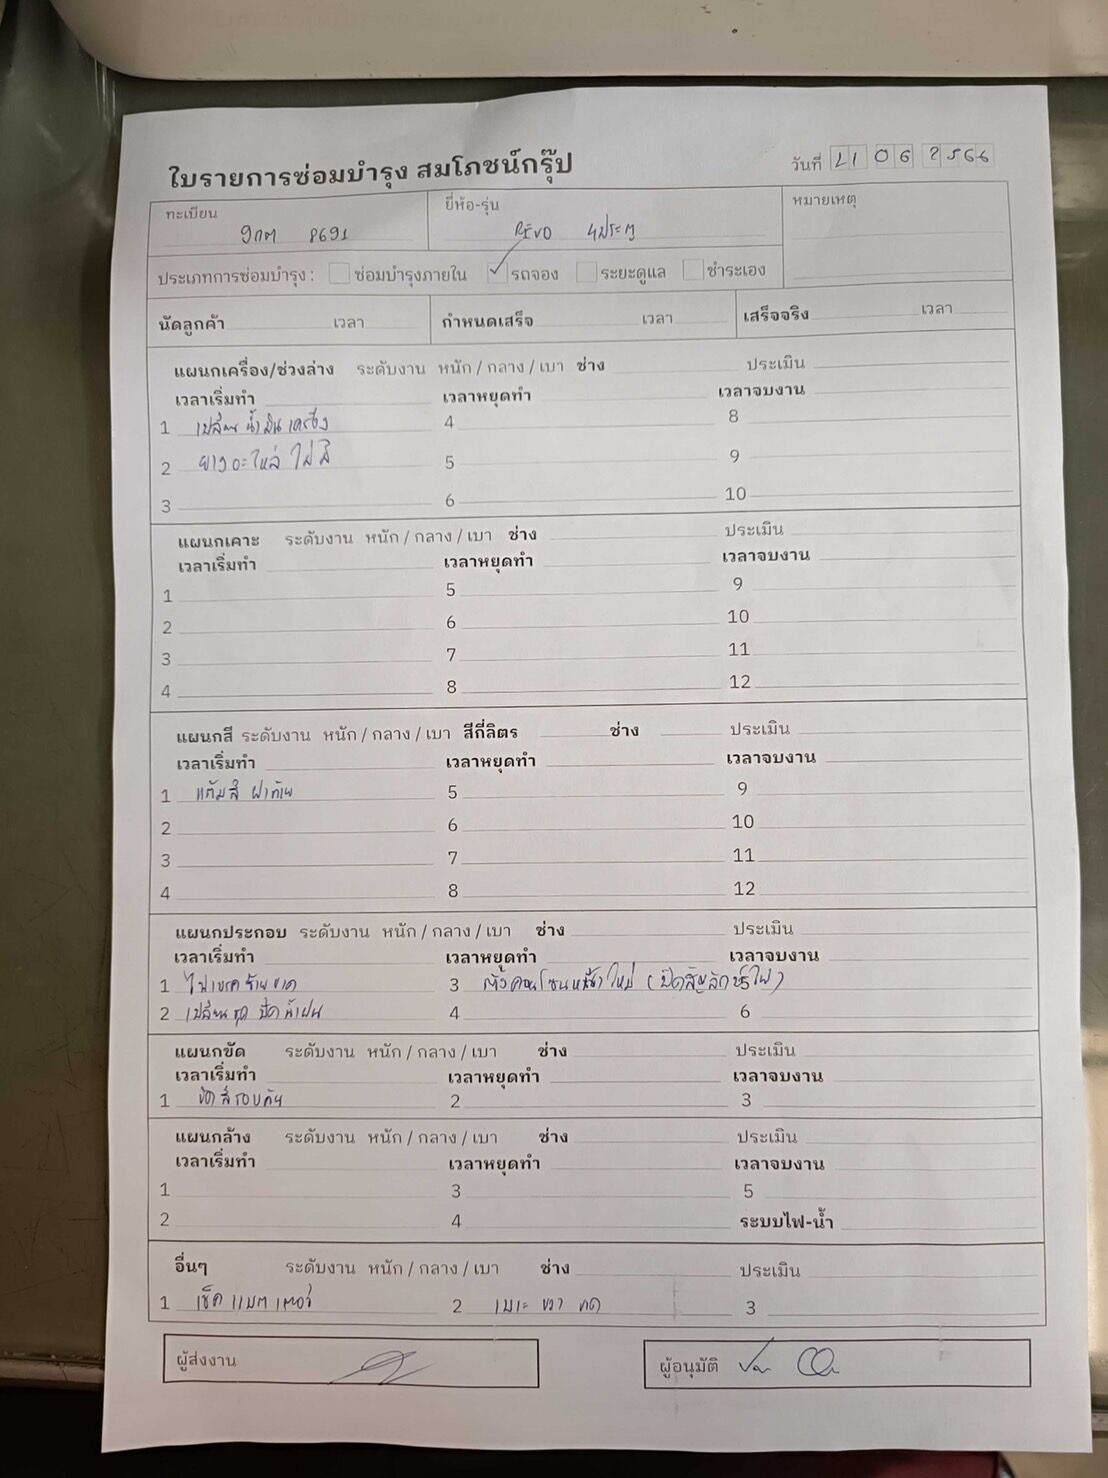 ใบรายการซ่อมบำรุง สมโภชน์กรุ๊ป
วันที่ 21 06 2566
ทะเบียน ยี่ห้อ-รุ่น หมายเหตุ
8691 REVO 4ประตู
ประเภทการซ่อมบำรุง : ซ่อมบำรุงภายใน ✓ รถจอง ระยะดูแล ชำระเอง
นัดลูกค้า เวลา กำหนดเสร็จ เวลา เสร็จจริง เวลา
แผนกเครื่อง/ช่วงล่าง ระดับงาน หนัก / กลาง / เบา ช่าง ประเมิน
เวลาเริ่มทำ เวลาหยุดทำ เวลาจบงาน
1 เปลี่ยนน้ำมันเครื่อง 4 8
2 ยางอะไหล่ ไม่มี 5 9
3 6 10
แผนกเคาะ ระดับงาน หนัก / กลาง / เบา ช่าง ประเมิน
เวลาเริ่มทำ เวลาหยุดทำ เวลาจบงาน
1 5 9
2 6 10
3 7 11
4 8 12
แผนกสี ระดับงาน หนัก / กลาง / เบา สีกี่ลิตร ช่าง ประเมิน
เวลาเริ่มทำ เวลาหยุดทำ เวลาจบงาน
1 แต้มสี ฝาท้าย 5 9
2 6 10
3 7 11
4 8 12
แผนกประกอบ ระดับงาน หนัก / กลาง / เบา ช่าง ประเมิน
เวลาเริ่มทำ เวลาหยุดทำ เวลาจบงาน
1 ไฟเบรคซ้ายขาด 3 คอนโซนหน้าใหม่ (ปิดสัญลักษ์ไฟ)
2 เปลี่ยนชุด ปัดน้ำฝน 4 6
แผนกขัด ระดับงาน หนัก / กลาง / เบา ช่าง ประเมิน
เวลาเริ่มทำ เวลาหยุดทำ เวลาจบงาน
1 ขัดสีรอบคัน 2 3
แผนกล้าง ระดับงาน หนัก / กลาง / เบา ช่าง ประเมิน
เวลาเริ่มทำ เวลาหยุดทำ เวลาจบงาน
1 3 5
2 4 ระบบไฟ-น้ำ
อื่นๆ ระดับงาน หนัก / กลาง / เบา ช่าง ประเมิน
1 เช็คแบตเตอรี่ 2 เบาะ ขวา ขาด 3
ผู้ส่งงาน ผู้อนุมัติ